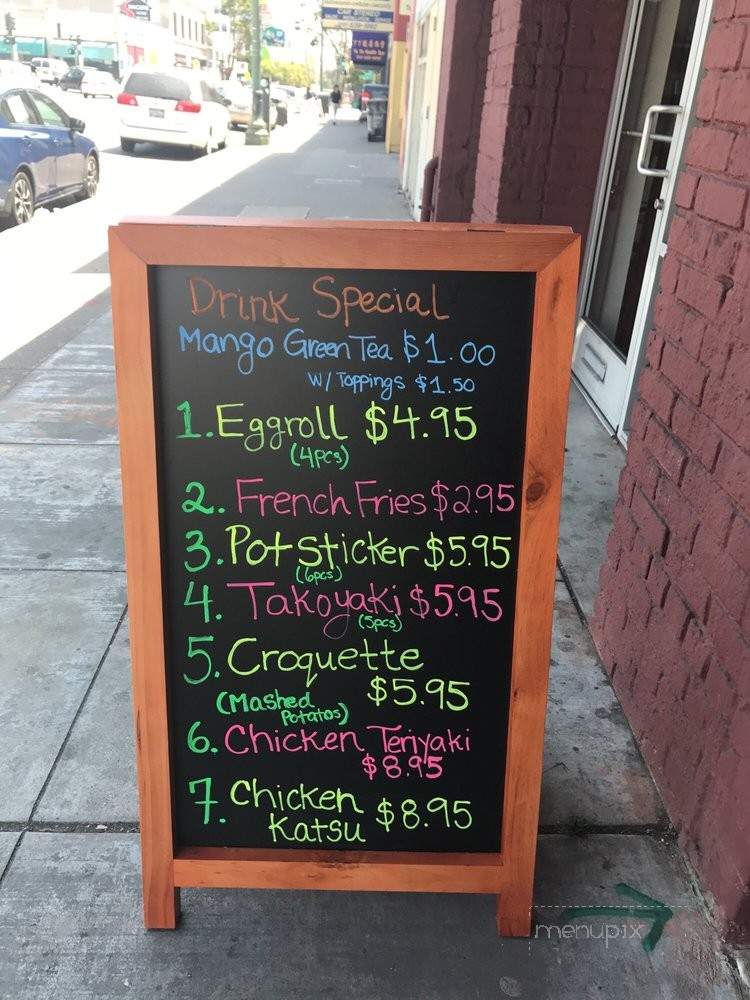 CAR STEREO
Drink Special
Mango Green Tea $1.00
W/ Toppings $1.50
1. Eggroll $4.95
(4pcs)
2. French Fries $2.95
3. Pot Sticker $5.95
(6pcs)
4. Takoyaki $5.95
(5pcs)
5. Croquette
$5.95
(Mashed
Potatos)
6. Chicken Teriyaki
$8.95
7. Chicken
Katsu $8.95
menupix